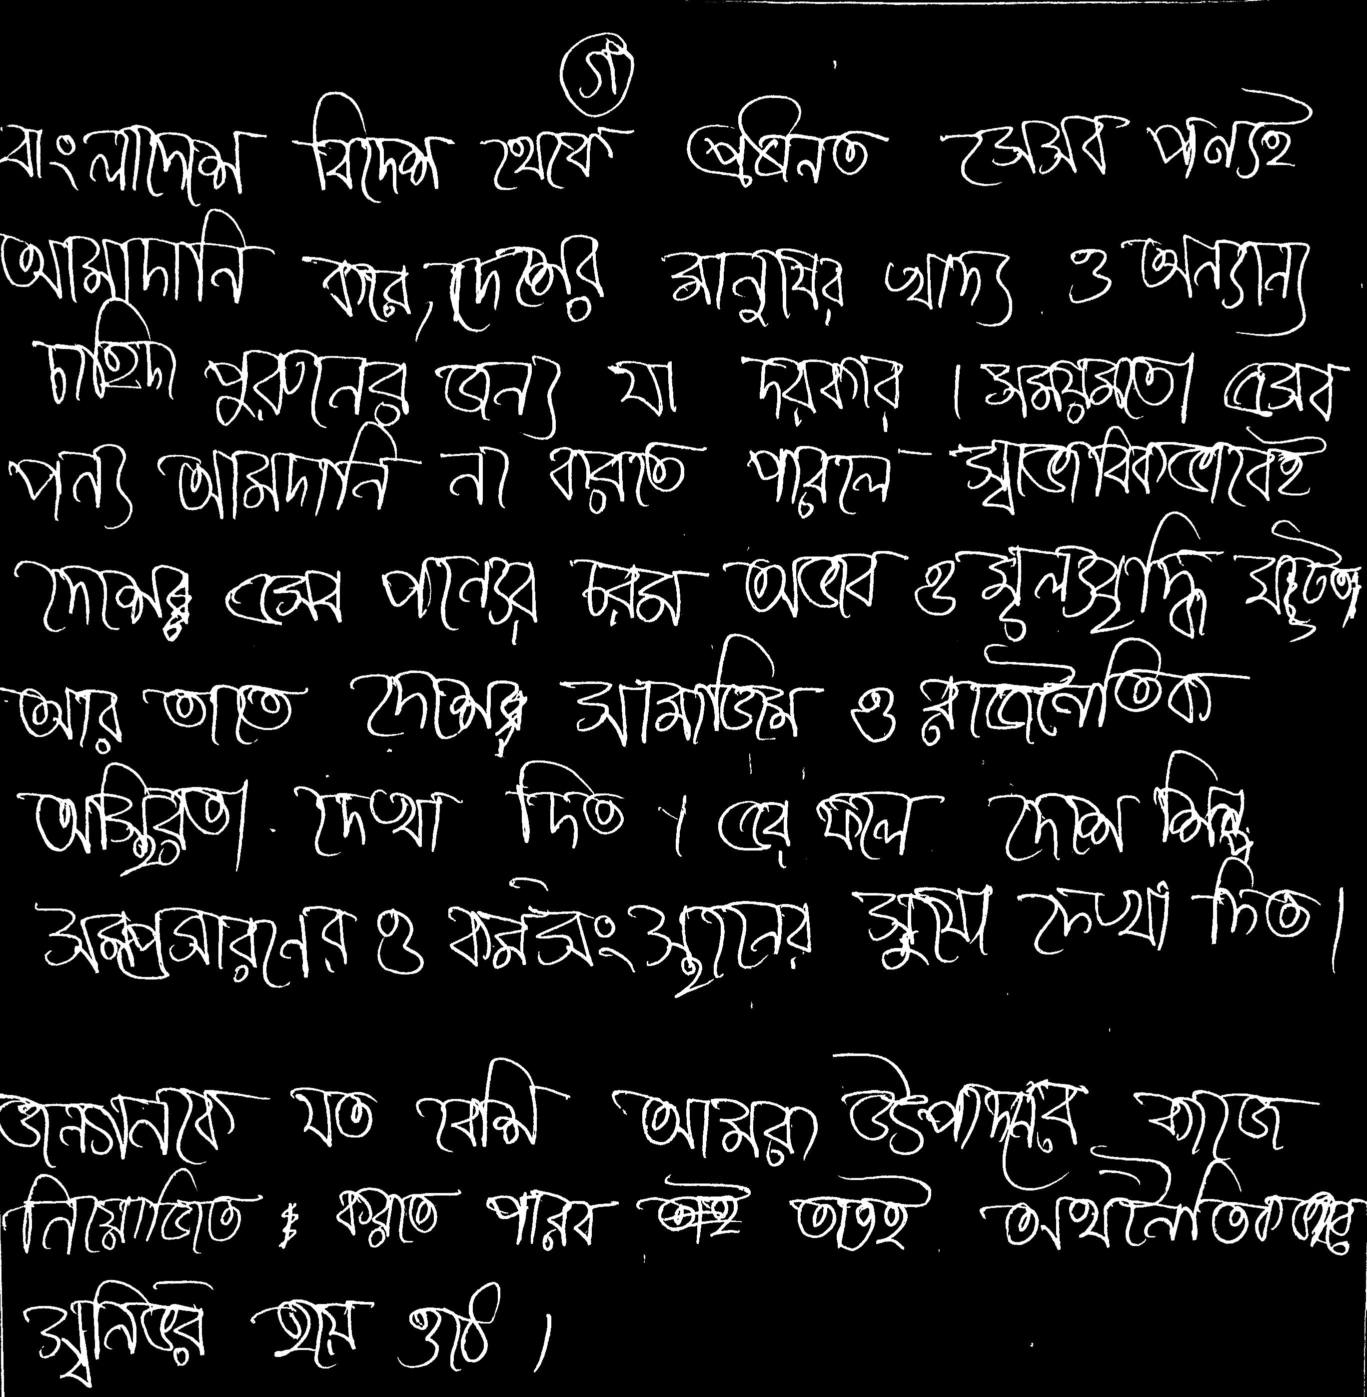 গ
বাংলাদেশ বিদেশ থেকে প্রধানত সেসব পন্যই
আমাদানি করে, দেশের মানুষের খাদ্য ও অন্যান্য
চাহিদা পুরনের জন্য যা দরকার । সময়মতো এসব
পন্য আমদানি না করতে পারলে স্বাভাবিকভাবেই
দেশের এসব পন্যের চরম অভাব ও মূল্যবৃদ্ধি ঘটত
আর তাতে দেশের সামাজিক ও রাজনৈতিক
অস্থিরতা দেখা দিত । এর ফলে দেশে শিল্প
সম্প্রসারণের ও কর্মসংস্থানের সুযো দেখা দিত।
জনগনকে যত বেশি আমরা উৎপাদনের কাজে
নিয়োজিত করতে পারব ততই অর্থনৈতিকভাবে
স্বনির্ভর হয়ে ওঠে ।